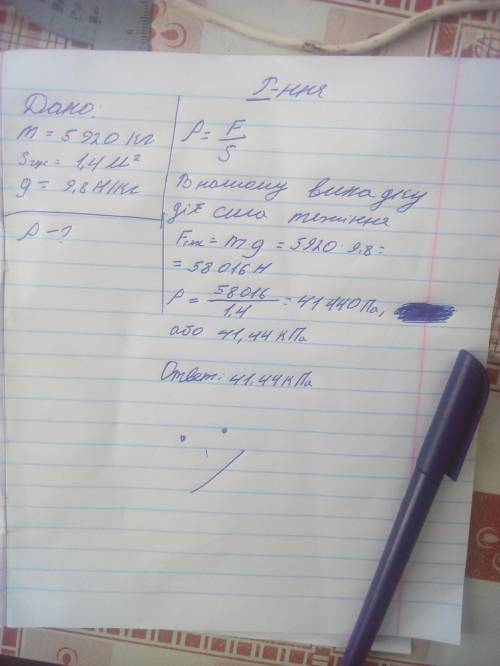 Р-ння
Дано:
m = 5920 кг
Sгус = 1,4 м²
g = 9,8 Н/кг
p - ?
p = F/S
В нашому випадку
діє сила тяжіння
Fтяж = m·g = 5920·9,8 =
= 58016 Н
p = 58016/1,4 = 41440 Па,
або 41,44 кПа
Ответ: 41.44 кПа